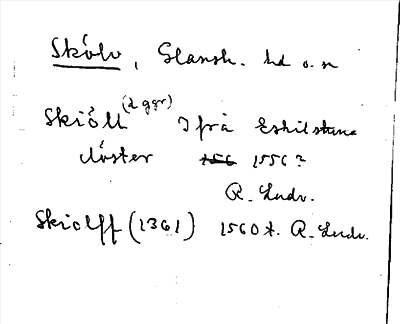 Skölv, Glansh. hd o. sn
Skiöll (2 ggr) I frå Eskilstuna
clöster 1556?
R. Ludv.
Skiolff (1361) 1560 t. R. Ludv.